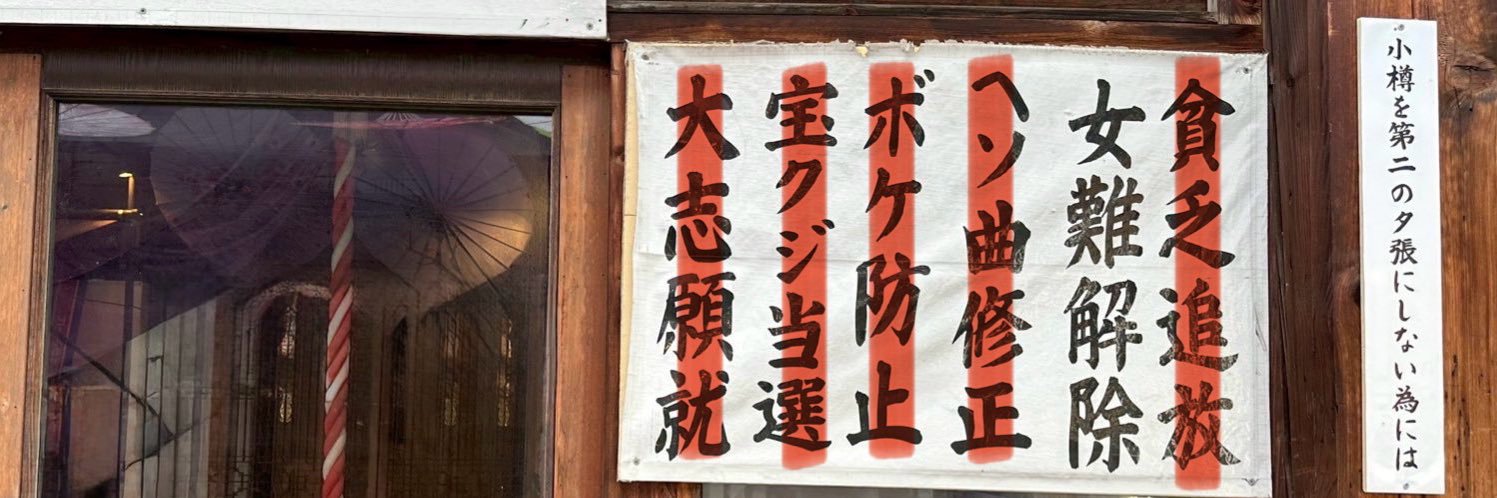 小樽を第二の夕張にしない為には
貧乏追放
女難解除
ヘソ曲修正
ボケ防止
宝クジ当選
大志願就